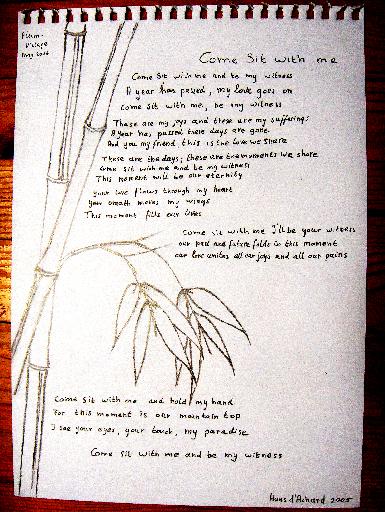 Plum-
Village
May 2005
Come Sit with me
Come Sit with me and be my witness
A year has passed, my love goes on
Come sit with me, be my witness
These are my joys and these are my sufferings
A year has passed these days are gone
And you my friend, this is the love we share
These are the days, these are the moments we share
Come sit with me and be my witness
This moment will be our eternity
Your love flows through my heart
Your breath moves my wings
This moment fills our lives
Come sit with me I'll be your witness
our past and future folds in this moment
our love unites all our joys and all our pains
Come Sit with me and hold my hand
For this moment is our mountain top
I see your eyes, your touch, my paradise
Come Sit with me and be my witness
Hans d'Achard 2005